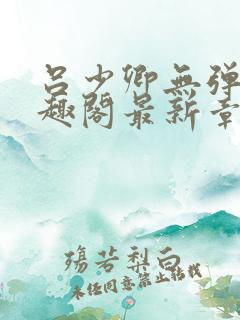 吕少卿無弹
趣阁最新章
殇芳梨白
未经同意禁止转载